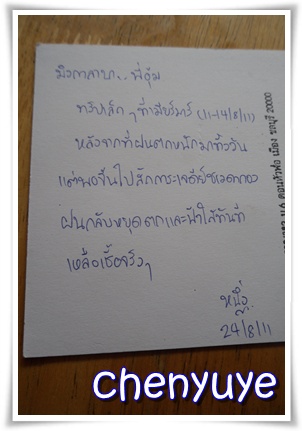 มิงกาลาบา.. พี่อุ้ม
ทริปเล็กๆที่เมียร์มาร์ (11-14/8/11)
หลังจากที่ฝนตกหนักมาทั้งวัน
แต่พอขึ้นไปสักการะเจดีย์ชเวดากอง
ฝนกลับหยุดตกและฟ้าใสทันที
เหลือเชื่อจริงๆ
หนึ่ง
24/8/11
ม.6 ต.ดอนหัวฬ่อ เมือง ชลบุรี 20000
chenyuye